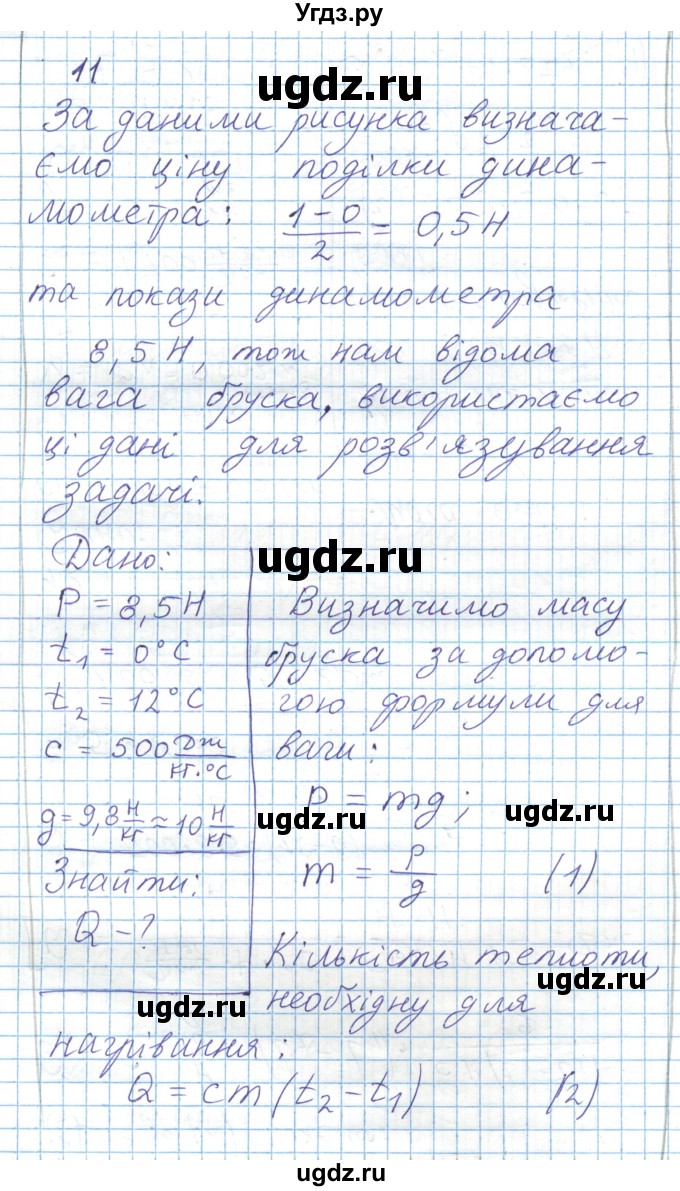 Угдз.ру
11
ugdz.ru
За даними рисунка визнача-
ємо ціну поділки дина-
мометра: (1-0)/2 = 0,5 Н
та покази динамометра
8,5 Н, тож нам відома
вага бруска, використаємо
ці дані для розв'язування
задачі.
ugdz.ru
Дано:
P = 8,5 Н
t₁ = 0°C
t₂ = 12°C
c = 500 Дж/(кг·°C)
g = 9,8 Н/кг ≈ 10 Н/кг
Знайти:
Q - ?
Визначимо масу
бруска за допомо-
гою формули для
ваги:
P = mg;
ugdz.ru
ugdz.ru
m = P/g (1)
Кількість теплоти,
ugdz.ru
необхідну для
ugdz.ru
нагрівання:
Q = cm(t₂ - t₁) (2)
ugdz.ru